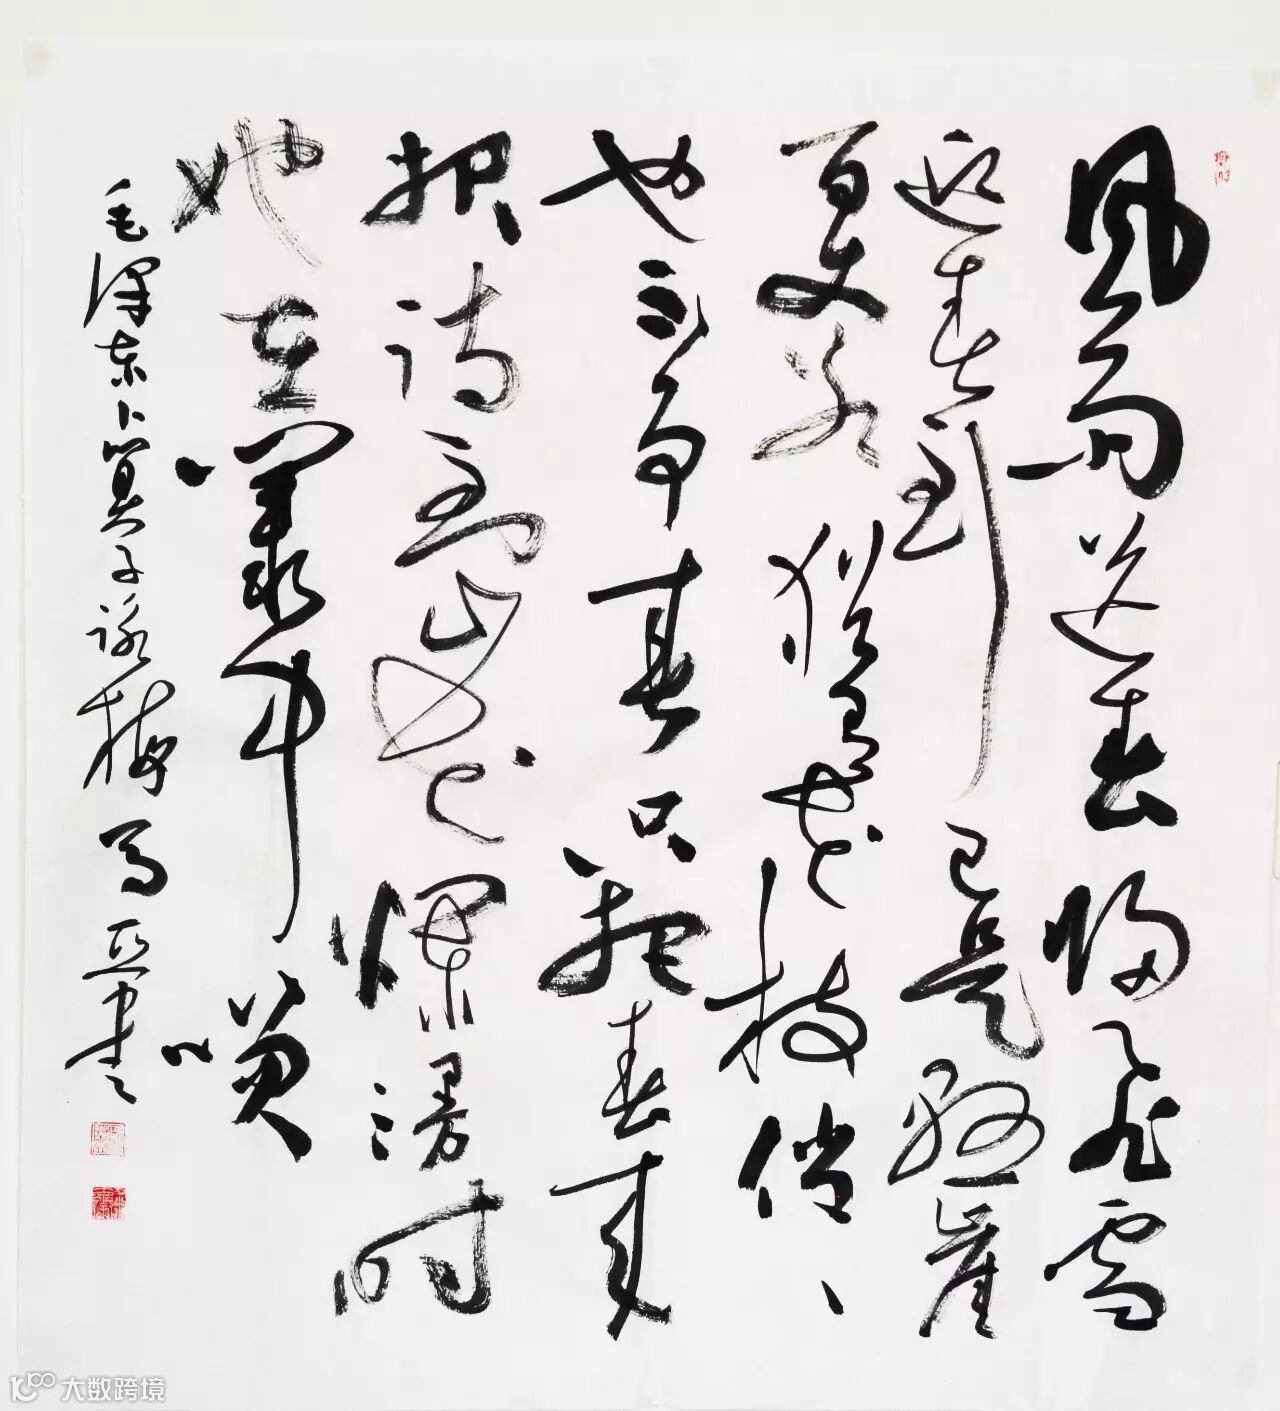 風雨送春歸飛雪
迎春到已是懸崖
百丈冰猶有花枝俏、
也不爭春只把春來
報待到山花爛漫時
她在叢中笑
毛澤東卜算子詠梅 馬亞書
大数跨境